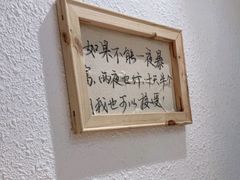 如果不能一夜暴
富,两夜也行,十天半个
月我也可以接受!